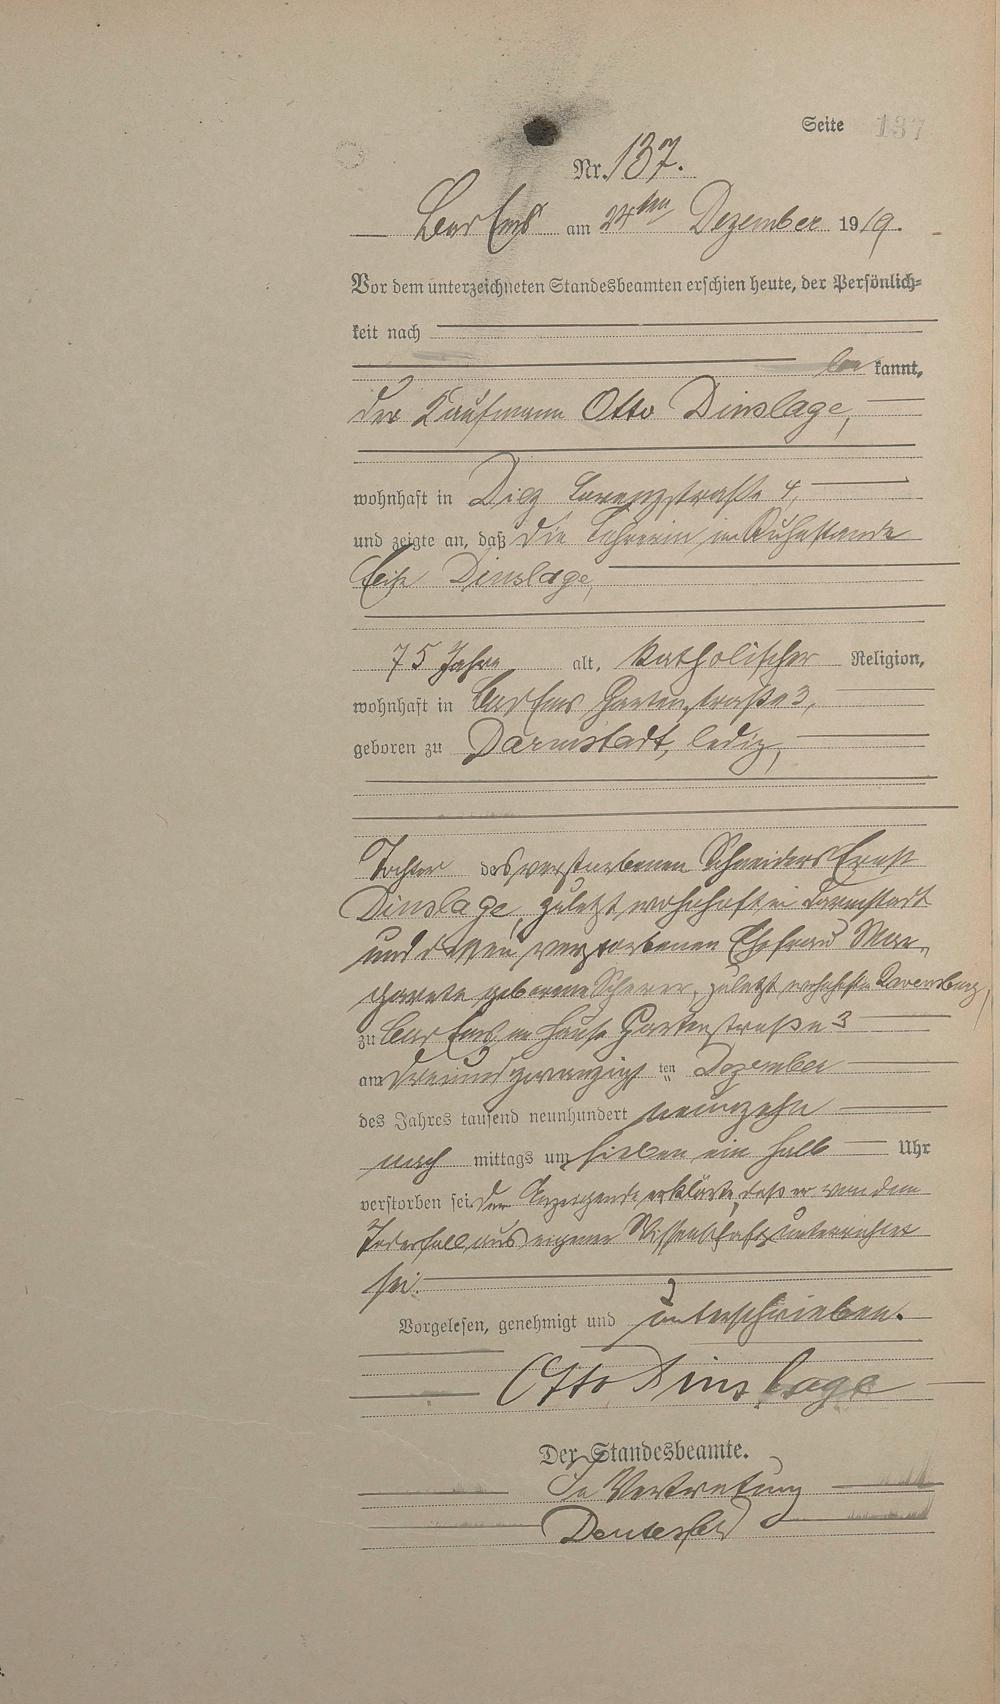 Seite 137
Nr. 137.
Bad Ems am 24ten Dezember 1919.
Vor dem unterzeichneten Standesbeamten erschien heute, der Persönlich-
keit nach
be kannt,
der Kaufmann Otto Dinslage,
wohnhaft in Diez Lorenzstraße 4,
und zeigte an, daß die Lehrerin im Ruhestande
Dinslage,
75 Jahre alt, katholischer Religion,
wohnhaft in Bad Ems Gartenstraße 3,
geboren zu Darmstadt, ledig,
Tochter des verstorbenen Schneiders Ernst
Dinslage, zuletzt wohnhaft in Darmstadt
und dessen verstorbenen Ehefrau Mar-
garete geborene Scherer, zuletzt wohnhaft in
zu Bad Ems im Hause Gartenstraße 3
am dreiundzwanzigsten ten Dezember
des Jahres tausend neunhundert neunzehn
nach mittags um sieben ein halb Uhr
verstorben sei. Der Anzeigende erklärte, daß er von dem
Todesfall aus eigener Wissenschaft unterrichtet
sei.
Vorgelesen, genehmigt und unterschrieben.
Otto Dinslage
Der Standesbeamte.
In Vertretung